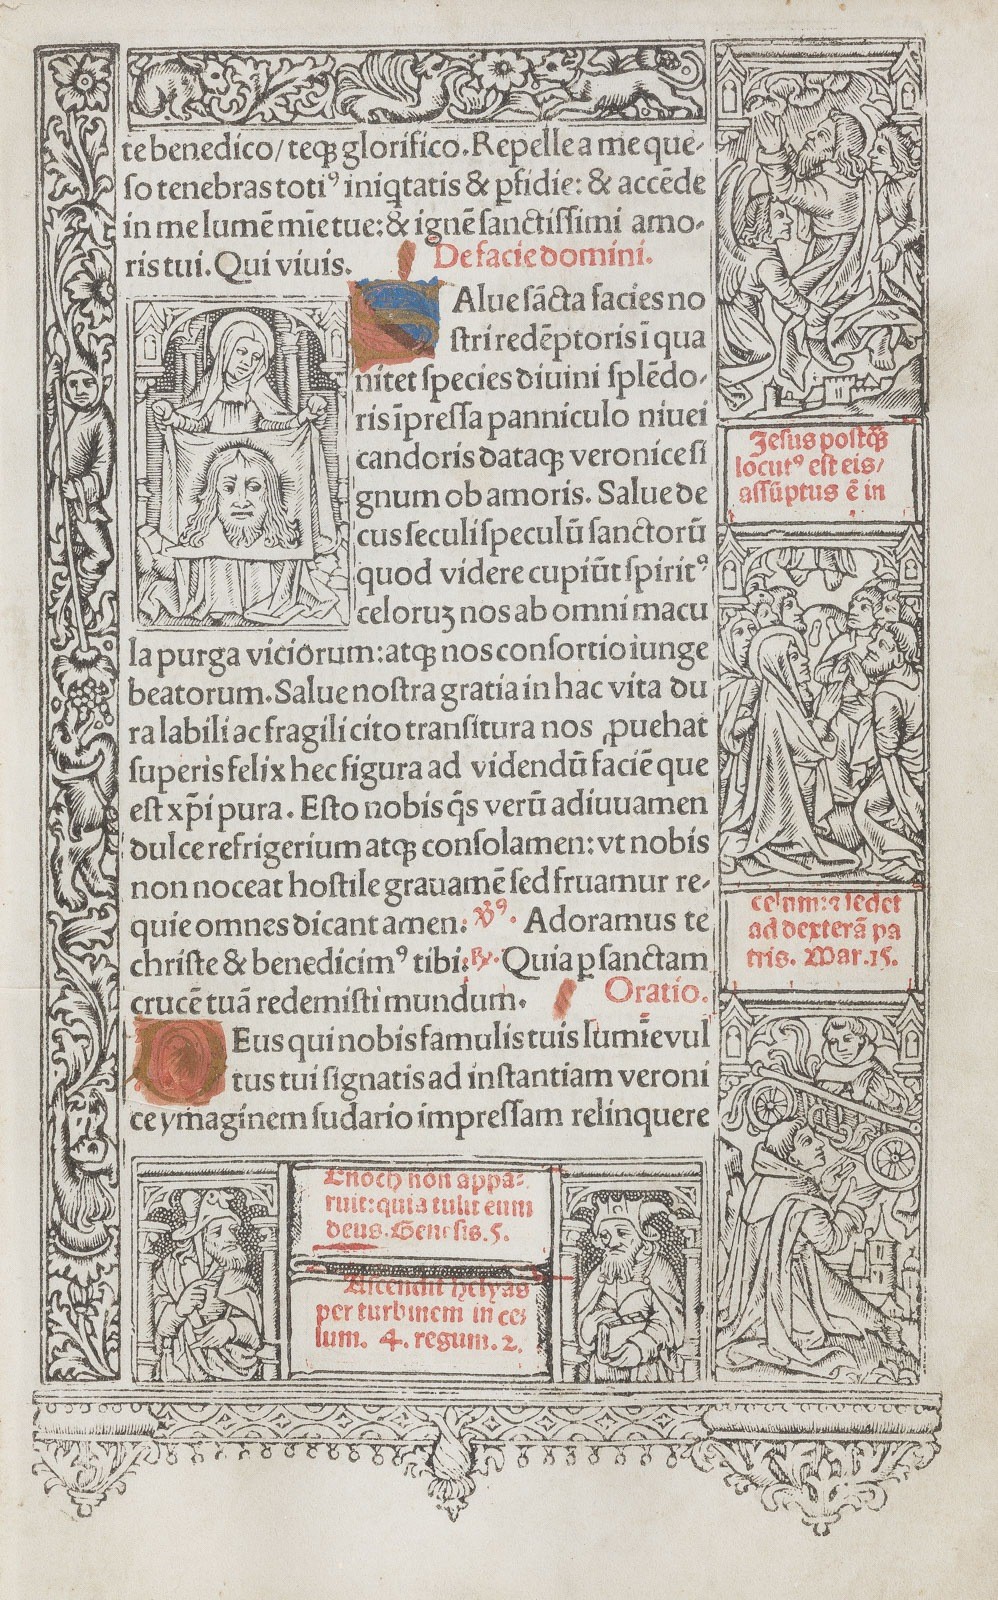 te benedico/ teqꝫ glorifico. Repelle a me que-
so tenebras totiꝰ iniqtatis & ꝑfidie: & accēde
in me lumē mīe tue: & ignē sanctissimi amo-
ris tui. Qui viuis.
De facie domini.
SAlue sācta facies no
stri redēptoris ī qua
nitet species diuini splēdo-
ris īpressa panniculo niuei
candoris dataqꝫ veronice si
gnum ob amoris. Salue de
cus seculi speculū sanctorū
quod videre cupiūt spiritꝰ
celoruꝫ nos ab omni macu
la purga viciorum: atqꝫ nos consortio iunge
beatorum. Salue nostra gratia in hac vita du
ra labili ac fragili cito transitura nos ꝓuehat
superis felix hec figura ad videndū faciē que
est xp̄i pura. Esto nobis q̄s verū adiuuamen
dulce refrigerium atqꝫ consolamen: vt nobis
non noceat hostile grauamē sed fruamur re-
quie omnes dicant amen. ℣ꝰ. Adoramus te
christe & benedicimꝰ tibi. ℟. Quia ꝑ sanctam
crucē tuā redemisti mundum.
Oratio.
DEus qui nobis famulis tuis lumīe vul
tus tui signatis ad instantiam veroni
ce ymaginem sudario impressam relinquere
Jesus postqꝫ̄
locutꝰ est eis/
assūptus ē in
celum: ⁊ sedet
ad dexterā pa
tris. Mar. 15.
Enoch non appa-
ruit: quia tulit eum
deus. Genesis. 5.
Ascendit helyas
per turbinem in ce-
lum. 4. regum. 2.